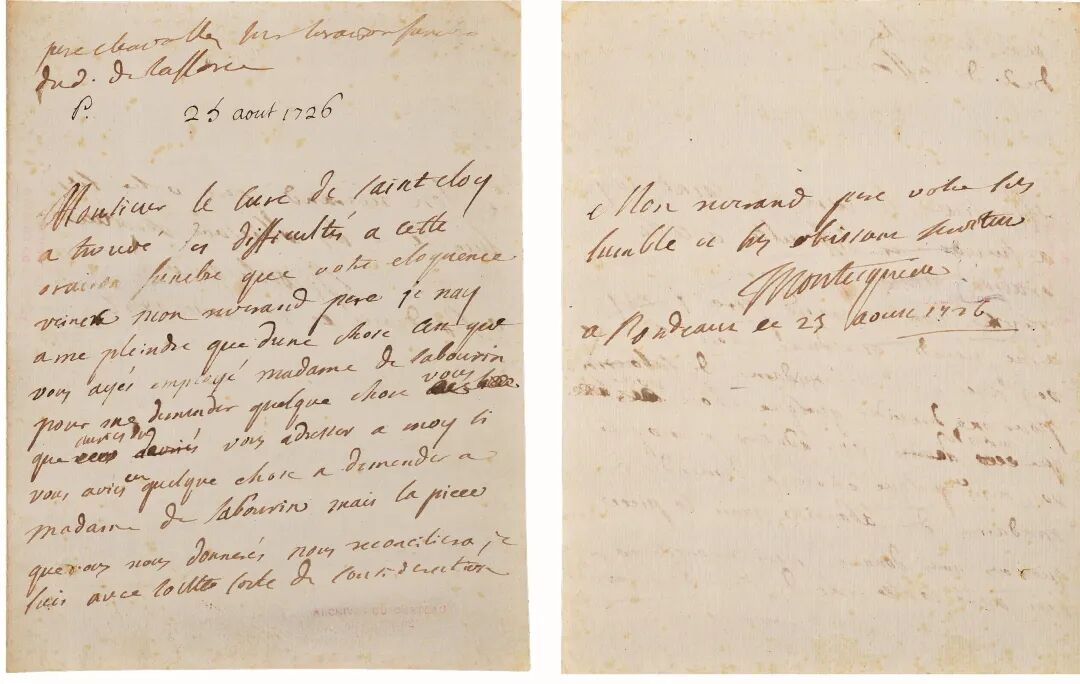 pere chevallier sur loraison funebre
du d. de lafforce
P. 25 aout 1726
Monsieur le curé de saint eloy
a trouvé des difficultés a cette
oraison funebre que votre eloquence
vaincra mon reverand pere je nay
a me pleindre que dune chose cen que
vous ayés employé madame de sabourin
pour me demender quelque chose vous
que auriés du vous adresser a moy si
vous aviés eu quelque chose a demender a
madame de sabourin mais la piece
que vous nous donnerés nous reconciliera je
suis avec toutte sorte de consideration
Mon reverand pere votre tres
humble et tres obeissant serviteur
Montesquieu
a Bordeaux ce 25 aoust 1726